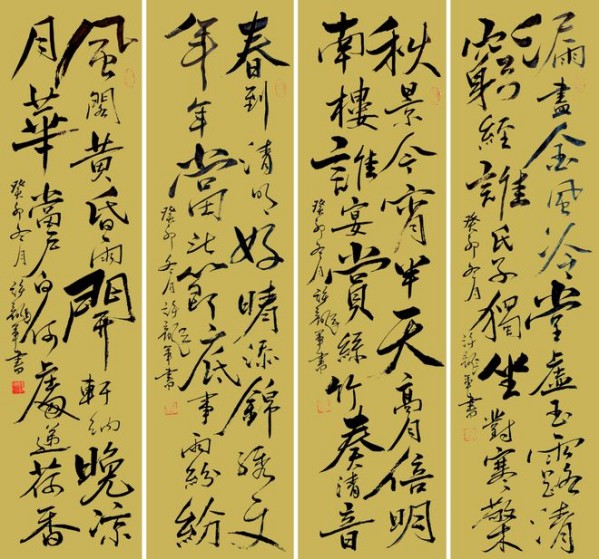 漏盡金風冷堂虛玉露清
窮經誰氏子獨坐對寒檠
癸卯冬月
秋景今宵半天高月倍明
南樓誰宴賞絲竹奏清音
癸卯冬月
春到清明好晴添錦繡文
年年當此節底事雨紛紛
癸卯冬月
風閣黃昏雨開軒納晚涼
月華當戶白何處遞荷香
癸卯冬月